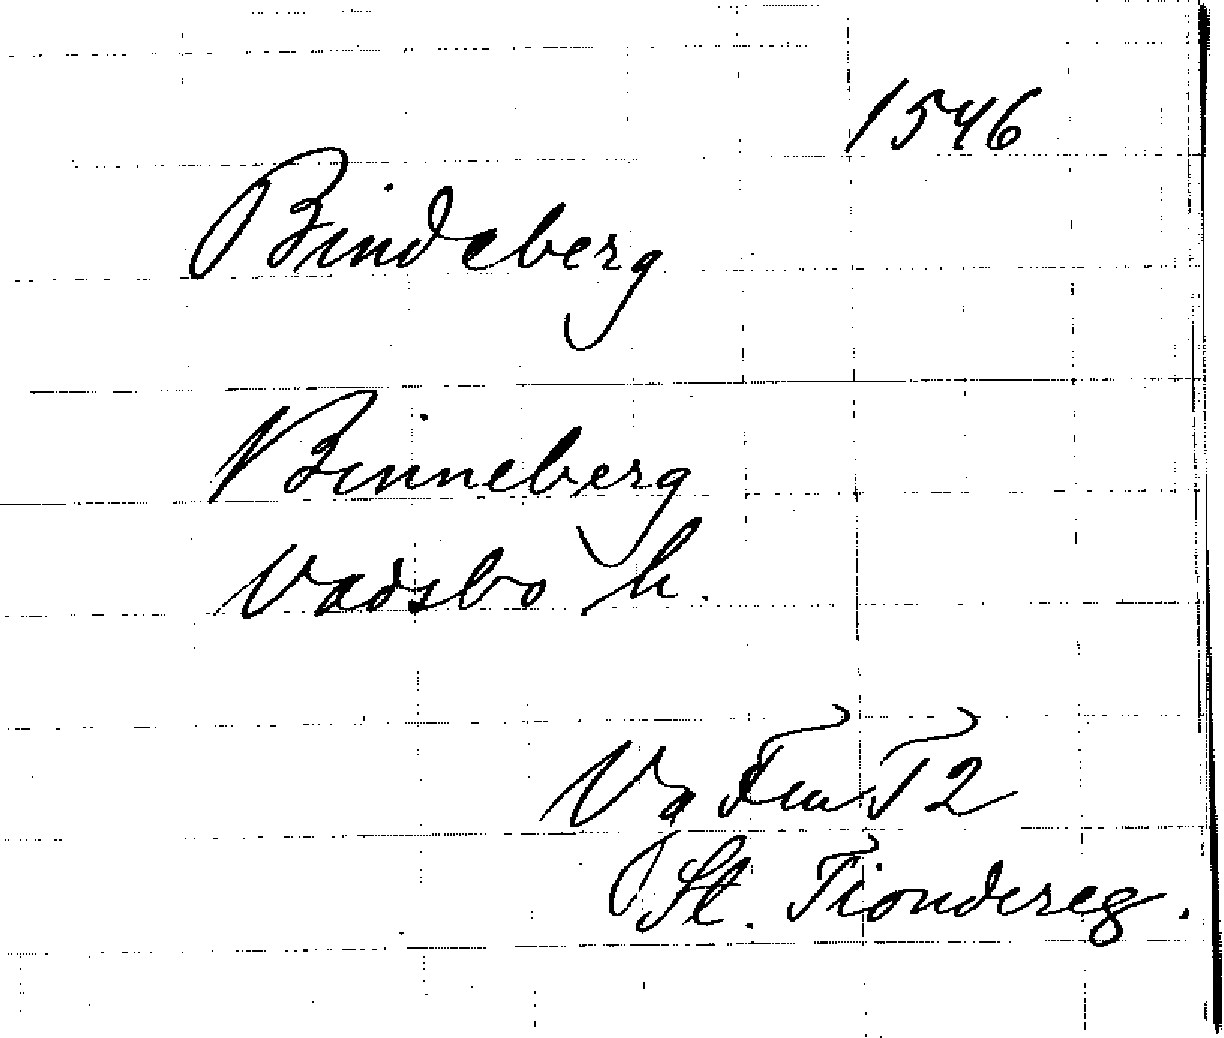 1546
Bindeberg
Binneberg
Vadsbo h.
Vg T2
St. Tiondereg.